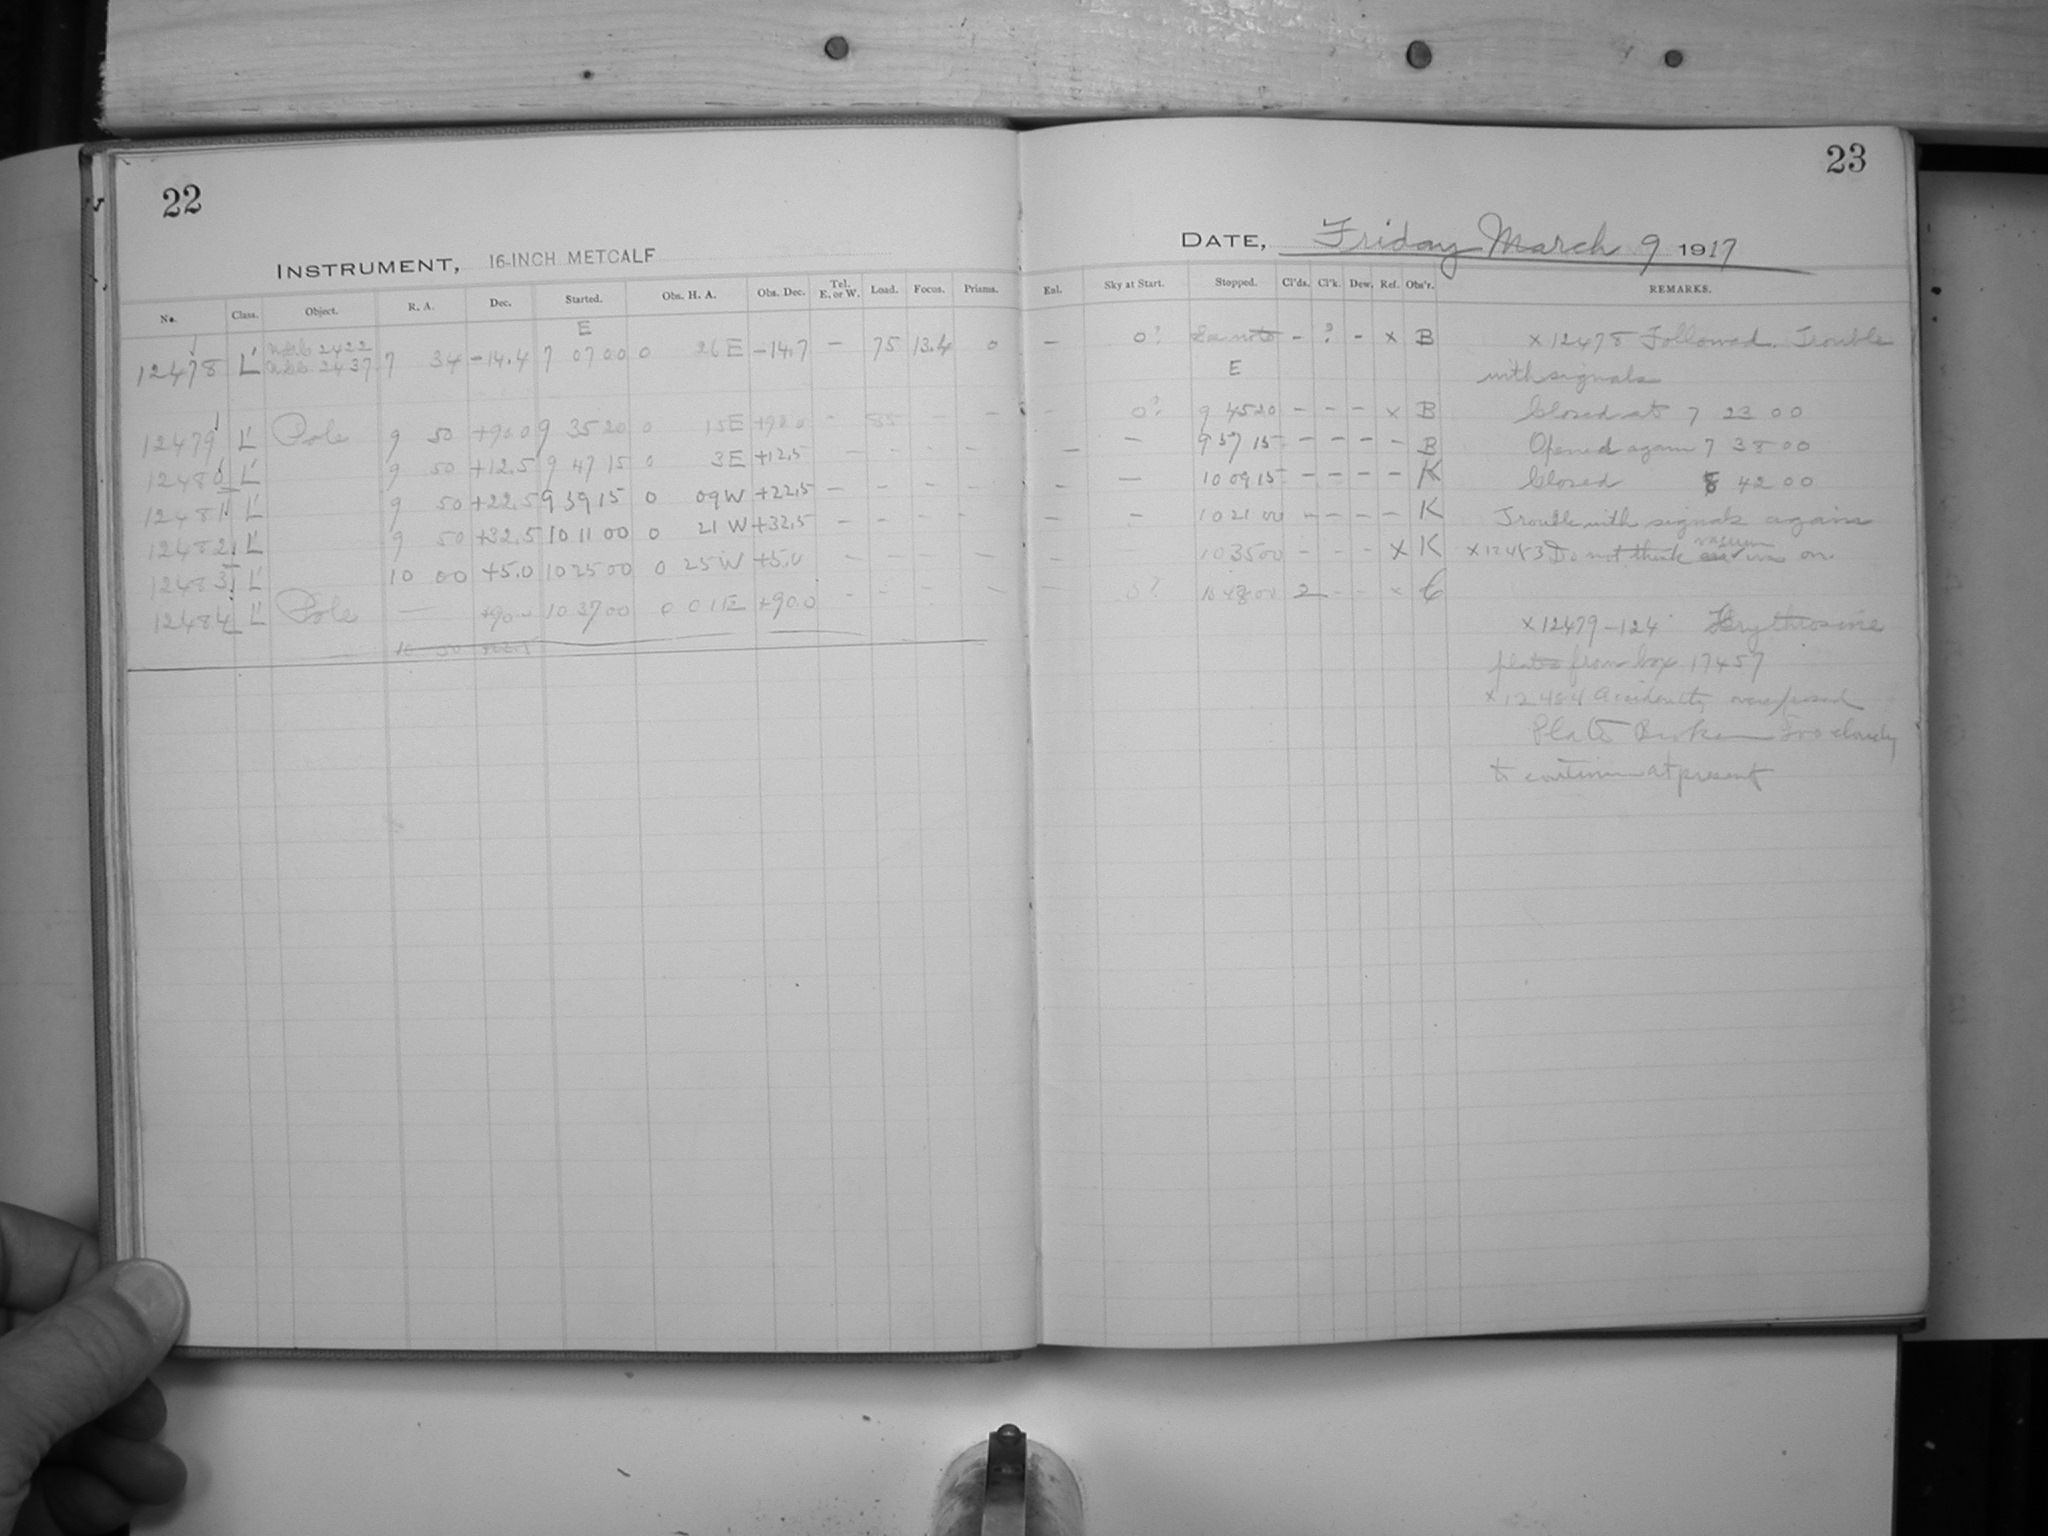 22
INSTRUMENT, 16-INCH METCALF
No. Class. Object. R. A. Dec. Started. Obs. H. A. Obs. Dec. Tel. E. or W. Load. Focus. Prisms.
E
12478 L' N.G.C. 2422 N.G.C. 2437 7 34 -14.4 7 07 00 0 26 E -14.7 - 75 13.4 0
12479 L' Pole 9 50 +90.0 9 35 20 0 15 E +90.0 - 85 - -
12480 L' 9 50 +12.5 9 47 15 0 3 E +12.5 - - - -
12481 L' 9 50 +22.5 9 39 15 0 09 W +22.5 - - - -
12482 L' 9 50 +32.5 10 11 00 0 21 W +32.5 - - - -
12483 L' 10 00 +5.0 10 25 00 0 25 W +5.0 - - - -
12484 L' Pole — +90.0 10 37 00 0 01 E +90.0 - - - -
10 50
23
DATE, Friday March 9 1917
Exl. Sky at Start. Stopped. Cl'ds. Cl'k. Dew. Ref. Obs'r. REMARKS.
- 0? See note - ? - x B x 12478 Followed. Trouble
E with signals
- 0? 9 45 20 - - - x B Closed at 7 23 00
- - 9 57 15 - - - - B Opened again 7 38 00
- - 10 09 15 - - - - K Closed 8 42 00
- - 10 21 00 - - - - K Trouble with signals again
- 10 35 00 - - - x K x 12483 Do not think vacuum was on.
- 0? 10 48 00 2 - - x C
x 12479-124 Erythrosine
plates from box 17457
x 12484 Accidently overexposed
Plate Broken Too cloudy
to continue at present